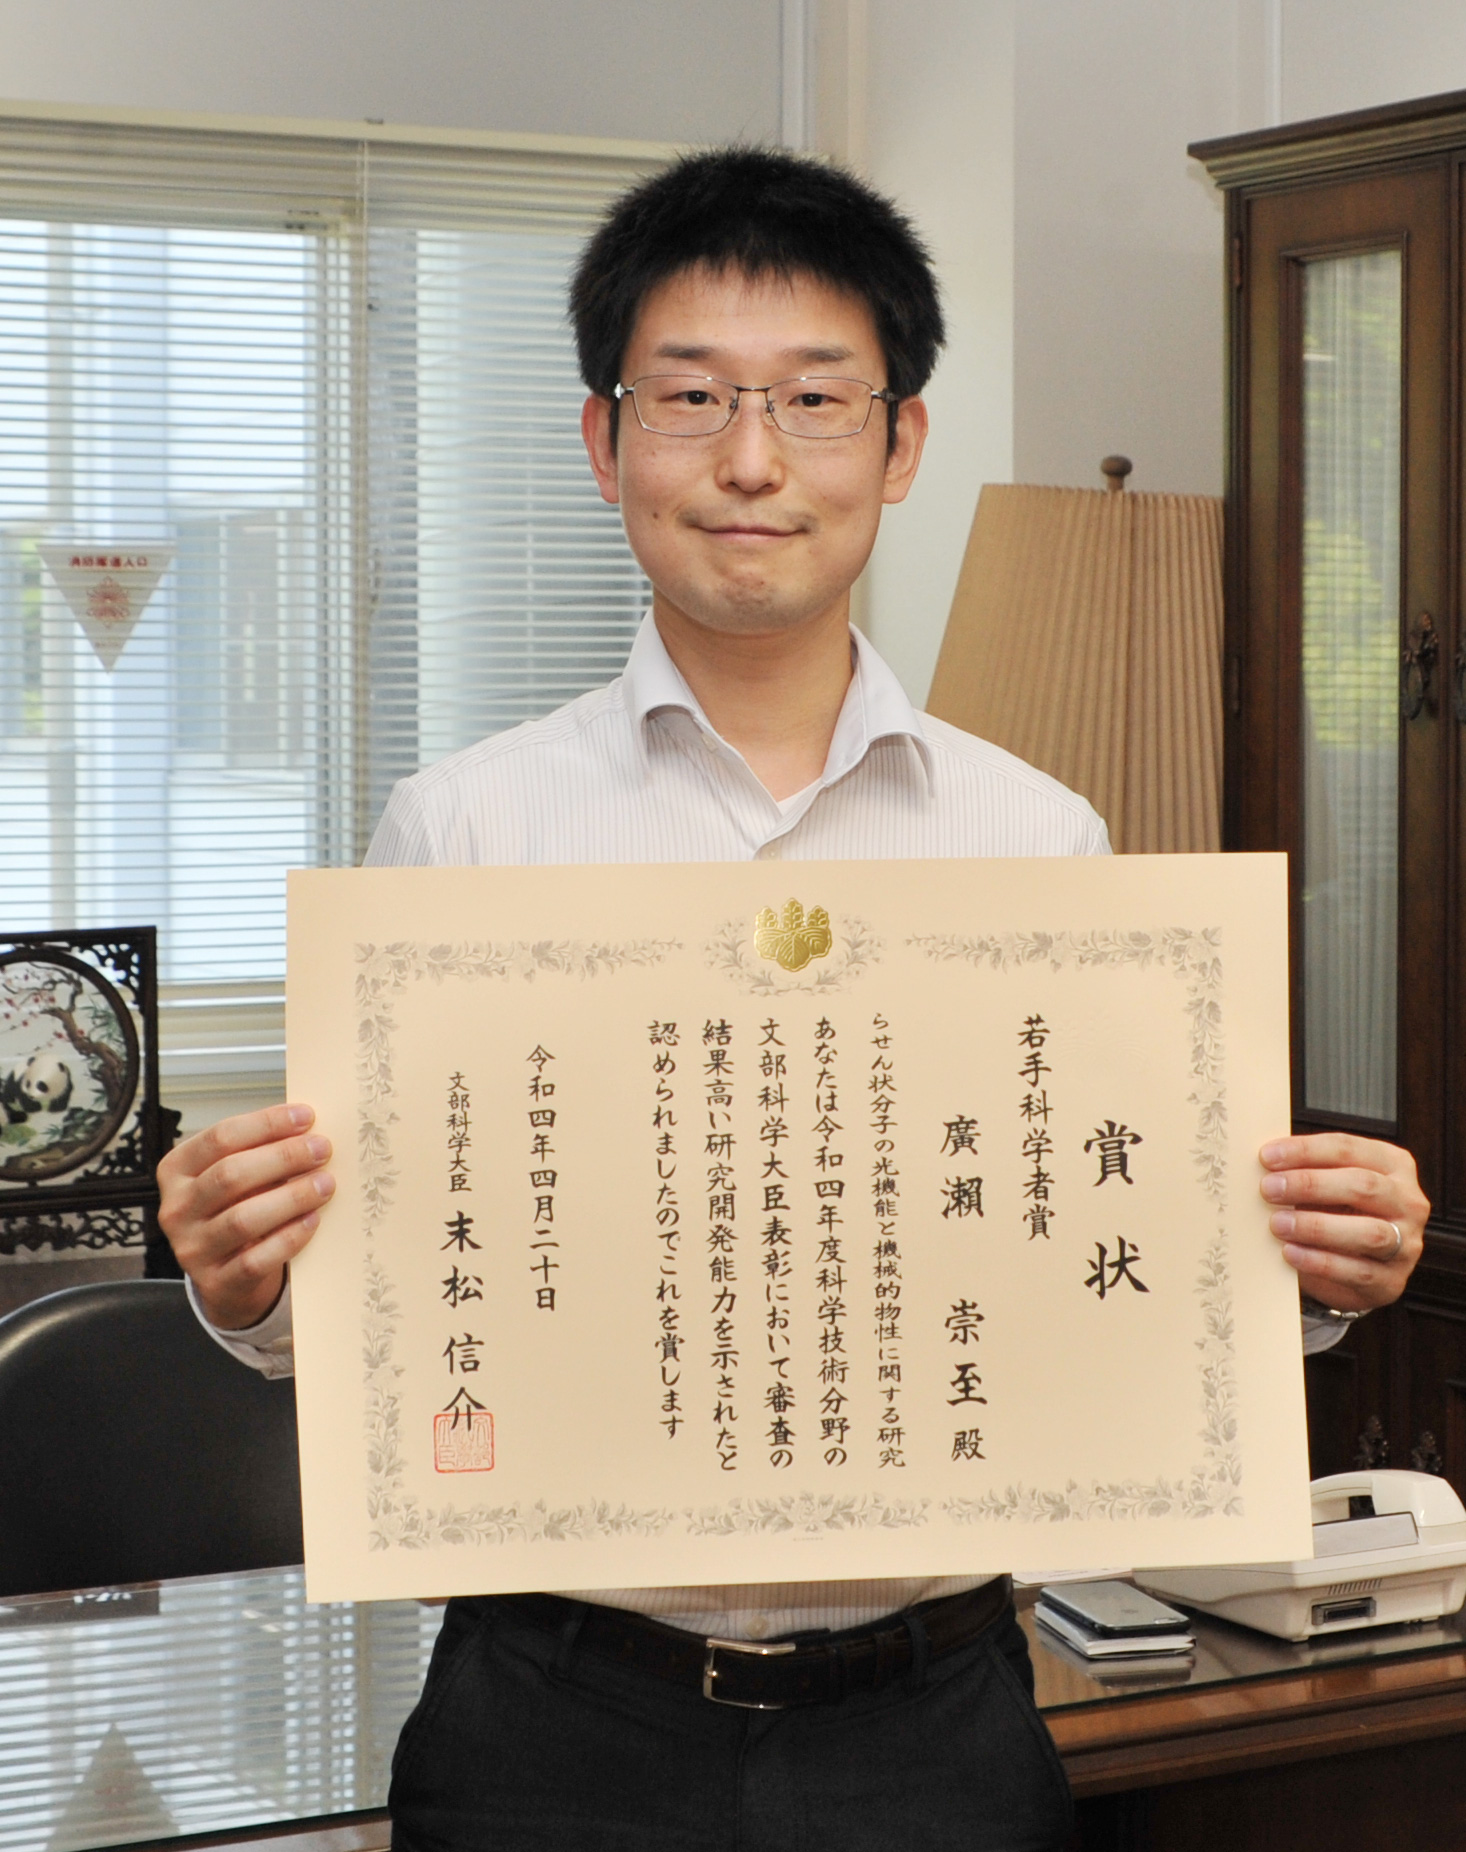 賞状
若手科学者賞
廣瀬 崇至 殿
らせん状分子の光機能と機械的物性に関する研究
あなたは令和四年度科学技術分野の
文部科学大臣表彰において審査の
結果高い研究開発能力を示されたと
認められましたのでこれを賞します
令和四年四月二十日
文部科学大臣 末松 信介
消防隊進入口